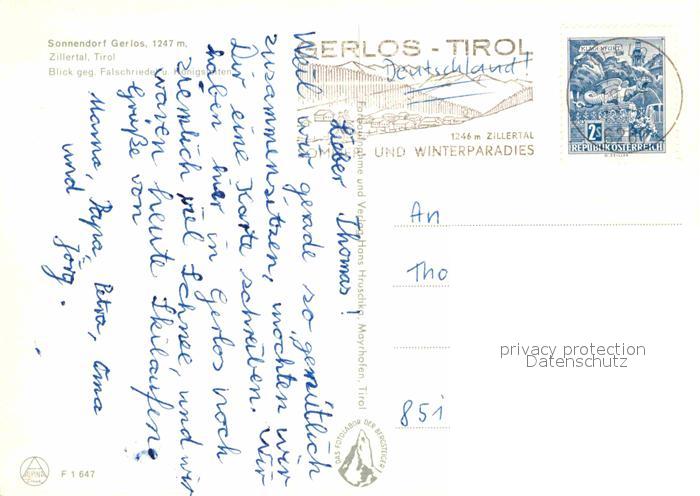 Sonnendorf Gerlos, 1247 m,
Zillertal, Tirol
Blick geg. Falschriedel u. Königsleiten
GERLOS - TIROL
Deutschland!
1246 m ZILLERTAL
SOMMER UND WINTERPARADIES
KLAGENFURT
2 S
REPUBLIK ÖSTERREICH
Lieber Thomas!
Weil wir gerade so gemütlich
zusammensitzen, möchten wir
Dir eine Karte schreiben. Wir
haben hier in Gerlos noch
ziemlich viel Schnee, und wir
waren heute Skilaufen.
Grüße von
Mama, Papa, Petra, Oma
und Jörg.
Farbaufnahme und Verlag Hans Hruschka, Mayrhofen, Tirol
An
Tho
privacy protection
Datenschutz
851
DAS FOTOLABOR DER BERGSTEIGER
F 1 647